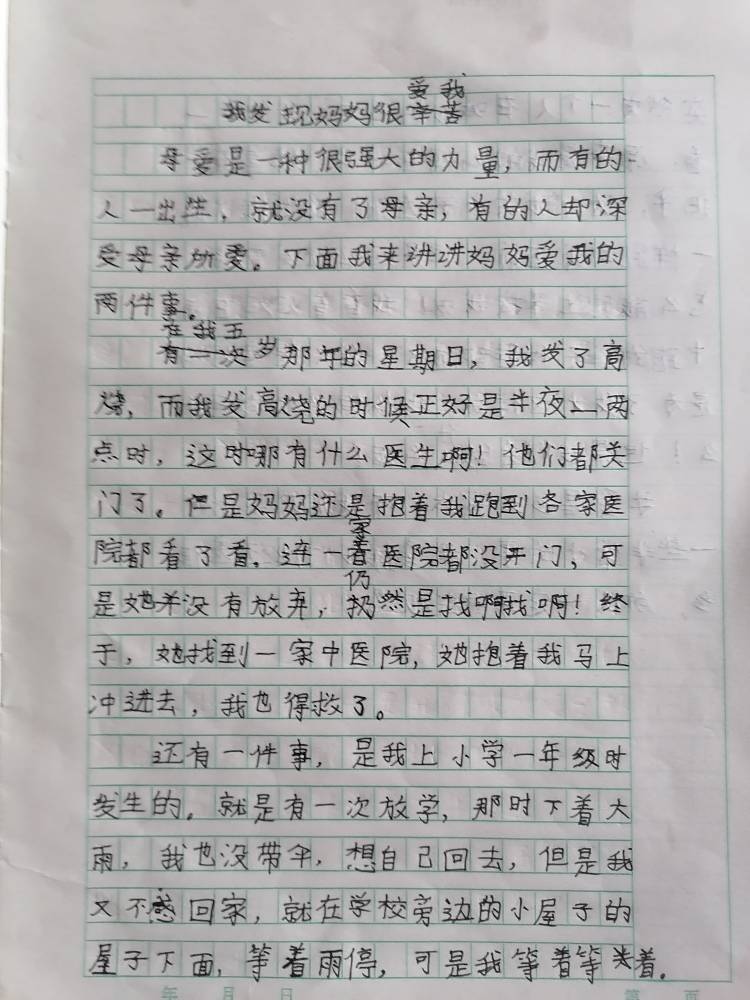 爱我
我发现妈妈很辛苦
母爱是一种很强大的力量，而有的
人一出生，就没有了母亲，有的人却深
受母亲所爱。下面我来讲讲妈妈爱我的
两件事。
在我五
有一次岁那年的星期日，我发了高
烧，而我发高烧的时候正好是半夜一两
点时，这时哪有什么医生啊！他们都关
门了。但是妈妈还是抱着我跑到各家医
院都看了看。连一着医院都没开门，可
家
仍
是她并没有放弃，扔然是找啊找啊！终
于，她找到一家中医院，她抱着我马上
冲进去，我也得救了。
还有一件事，是我上小学一年级时
发生的。就是有一次放学，那时下着大
雨，我也没带伞，想自己回去，但是我
又不敢回家，就在学校旁边的小屋子的
屋子下面，等着雨停，可是我等着等着。
年 月 日
第 页